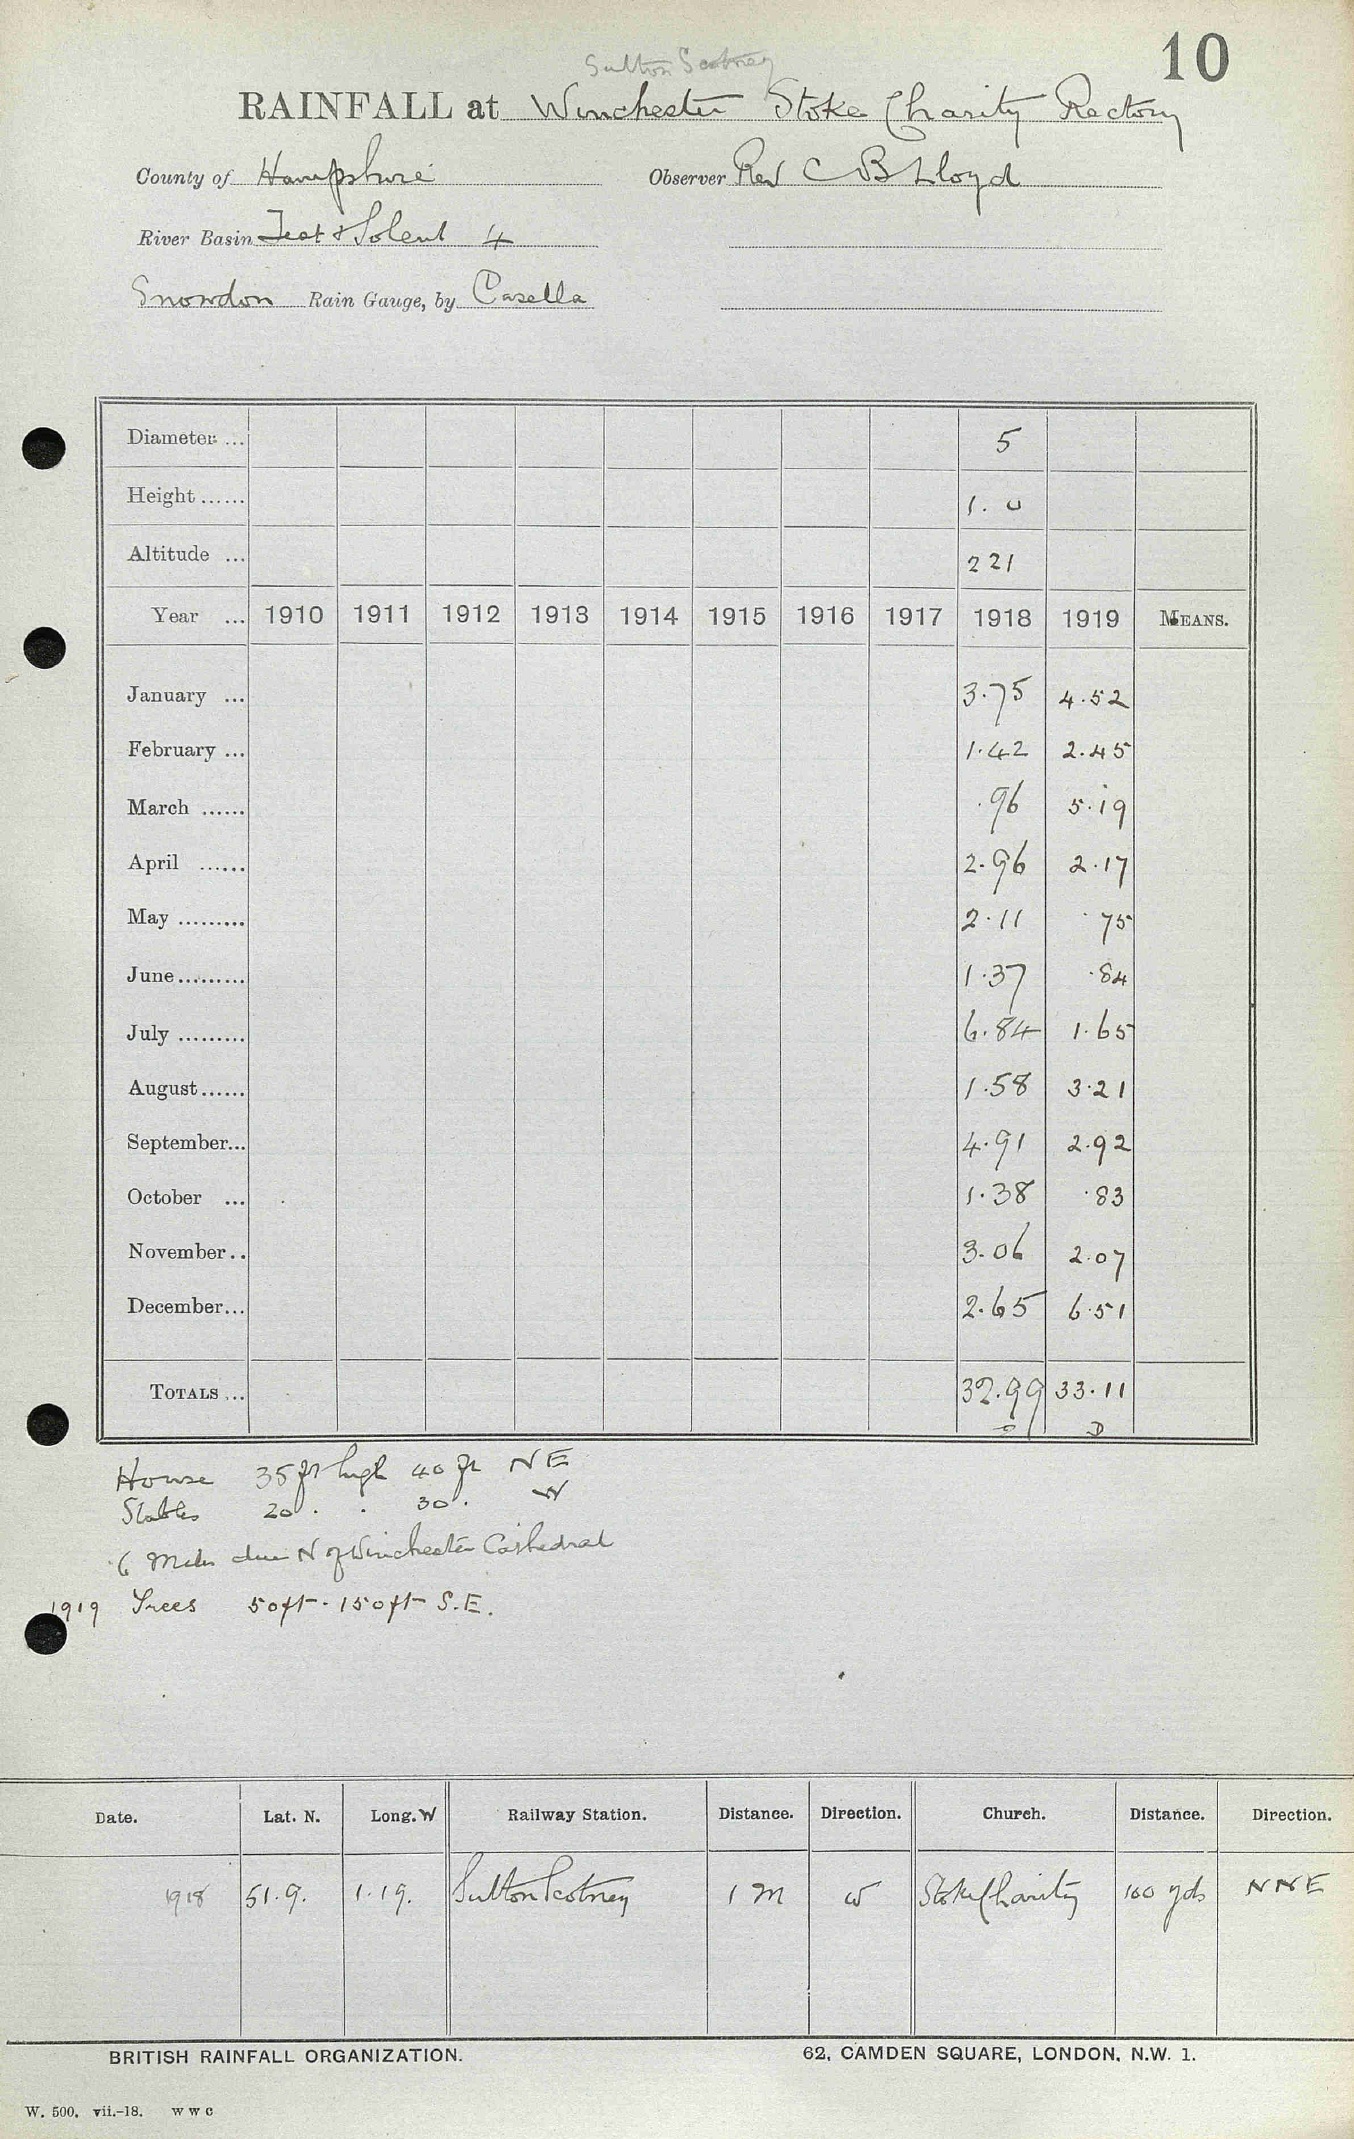 10
Sutton Scotney
RAINFALL at Winchester Stoke Charity Rectory
County of Hampshire Observer Rev C B Lloyd
River Basin Test & Solent 4
Snowdon Rain Gauge, by Casella
Diameter ... 5
Height ...... 1. 0
Altitude ... 221
Year ... 1910 1911 1912 1913 1914 1915 1916 1917 1918 1919 MEANS.
January ... 3.75 4.52
February ... 1.42 2.45
March ...... .96 5.19
April ...... 2.96 2.17
May ......... 2.11 .75
June ......... 1.37 .84
July ......... 6.84 1.65
August ...... 1.58 3.21
September... 4.91 2.92
October ... 1.38 .83
November.. 3.06 2.07
December... 2.65 6.51
TOTALS ... 32.99 33.11
D
House 35 ft high 40 ft NE
Stables 20 . . 30 . W
6 Miles due N of Winchester Cathedral
1919 Trees 50ft - 150ft S.E.
Date. Lat. N. Long. W Railway Station. Distance. Direction. Church. Distance. Direction.
1918 51.9. 1.19. Sutton Scotney 1 m W Stoke Charity 100 yds NNE
BRITISH RAINFALL ORGANIZATION. 62, CAMDEN SQUARE, LONDON, N.W. 1.
W. 500. vii.-18. W W C